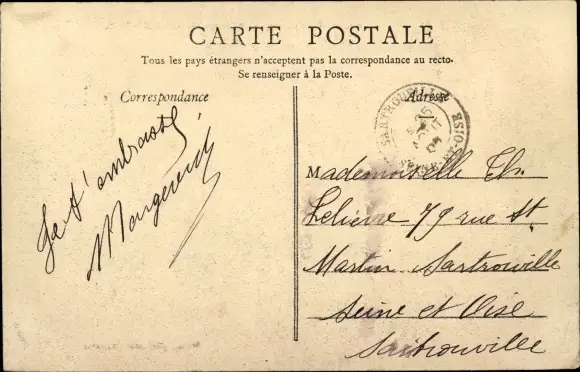 CARTE POSTALE
Tous les pays étrangers n'acceptent pas la correspondance au recto.
Se renseigner à la Poste.
Correspondance
Adresse
SARTROUVILLE
SEINE-ET-OISE
Je t'embrasse
Mademoiselle Th.
79 rue St
Martin Sartrouville
Seine et Oise
Sartrouville